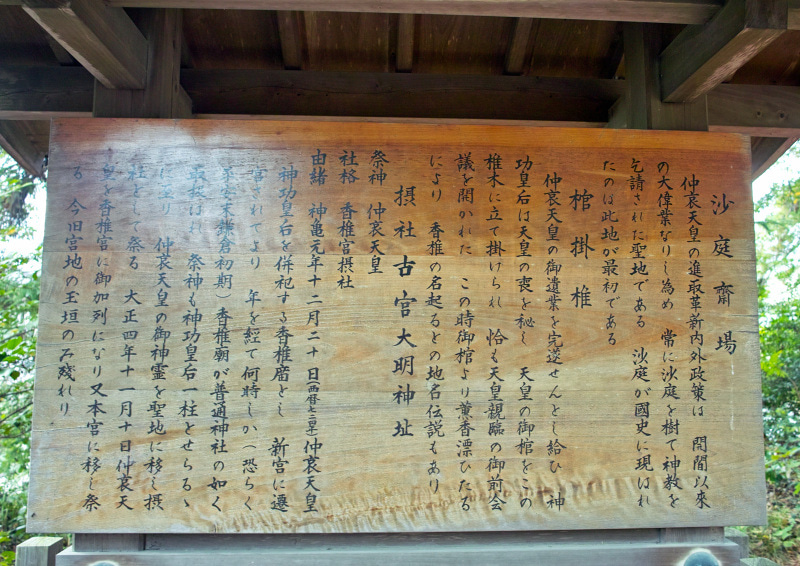 沙庭齋場
仲哀天皇の進取革新内外政策は 開闢以來
の大偉業なりし為め 常に沙庭を樹て神教を
乞請された聖地である 沙庭が國史に現はれ
たのは此地が最初である
棺掛椎
仲哀天皇の御遺業を完遂せんとし給ひ 神
功皇后は天皇の喪を秘し 天皇の御棺をこの
椎木に立て掛けられ 恰も天皇親臨の御前会
議を開かれた この時御棺より薫香漂ひたる
により 香椎の名起るとの地名伝説もあり
摂社古宮大明神址
祭神 仲哀天皇
社格 香椎宮摂社
由緒 神亀元年十二月二十日(西暦七二四年)仲哀天皇
神功皇后を併祀する香椎廟とし 新宮に遷
宮されてより 年を経て何時しか(恐らく
平安末鎌倉初期)香椎廟が普通神社の如く
扱はれ 祭神も神功皇后一柱とせらるゝ
に至り 仲哀天皇の御神霊を聖地に移し摂
社として祭る 大正四年十一月十日仲哀天
皇を香椎宮に御加列になり又本宮に移し祭
る 今旧宮地の玉垣のみ残れり